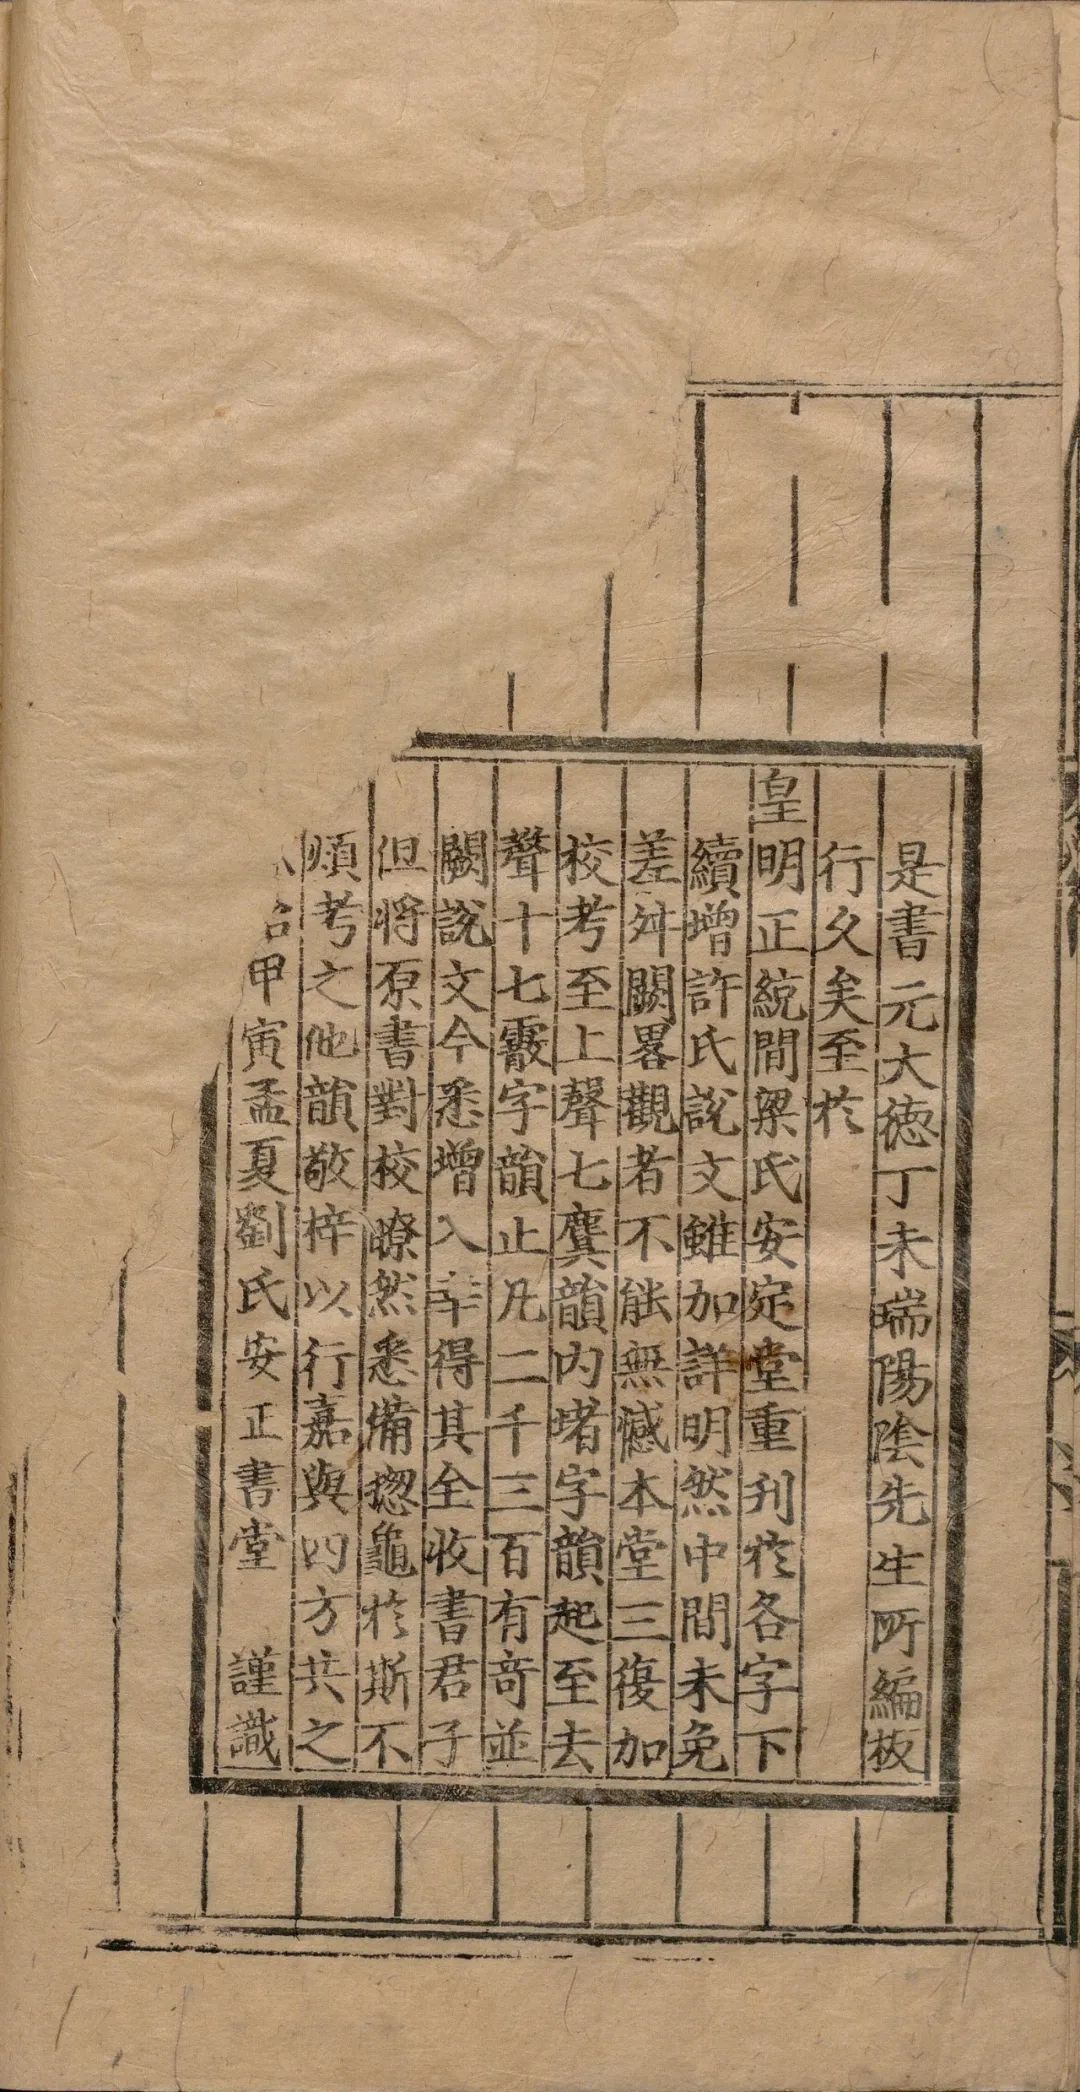 是書元大德丁未瑞陽陰先生所編板
行久矣至於
皇明正統間梁氏安定堂重刊於各字下
續增許氏說文雖加詳明然中間未免
差舛闕畧觀者不能無憾本堂三復加
校考至上聲七麌韻内堵字韻起至去
聲十七霰字韻止凡二千三百有奇並
闕說文今悉增入幸得其全收書君子
但將原書對校瞭然悉備揔龜於斯不
煩考之他韻敬梓以行嘉與四方共之
甲寅孟夏劉氏安正書堂　謹識